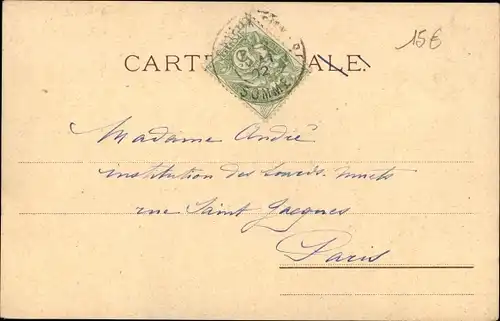 15€
CART ALE.
SOMME
02
Madame André
institution des sourds-muets
rue Saint Jacques
Paris